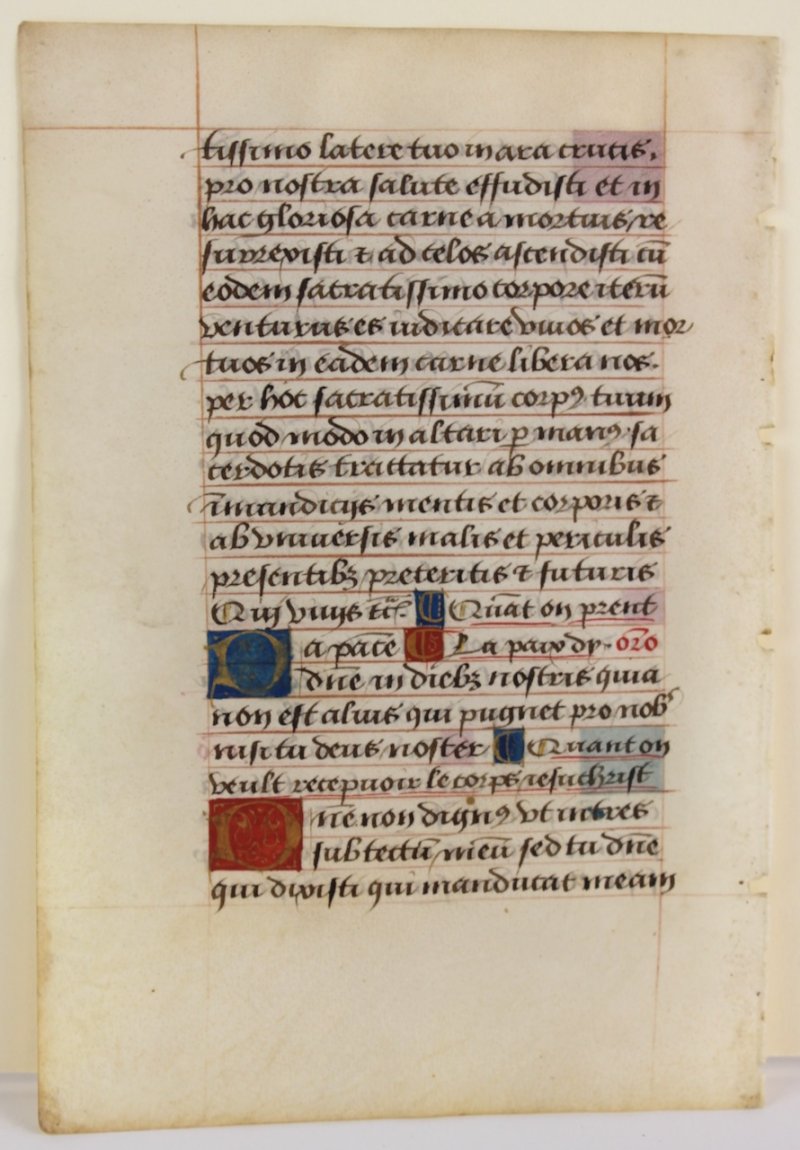 tissimo latere tuo in ara crucis.
pro nostra salute effudisti et in
hac gloriosa carne a mortuis re
surrexisti ⁊ ad celos ascendisti cū
eodem sacratissimo corpore iterū
venturus es iudicare viuos et mor
tuos in eadem carne libera nos.
per hoc sacratissimūm corpꝰ tuum
quod modo in altari ꝑ manꝰ sa
cerdotis tractatur ab omnibus
īmundicijs mentis et corporis ⁊
ab vniuersis malis et periculis
presentibꝫ preteritis ⁊ futuris
Qui viuis ⁊c̄. Quāt on prent
Da pacē La paix dy. oro
dn̄e in diebꝫ nostris quia
non est alius qui pugnet pro nobꝭ
nisi tu deus noster Quant on
veult recepuoir le corps iesuchrist
Dn̄e non dignꝰ vt intres
sub tectū meū sed tu dn̄e
qui dixisti qui manducat meam